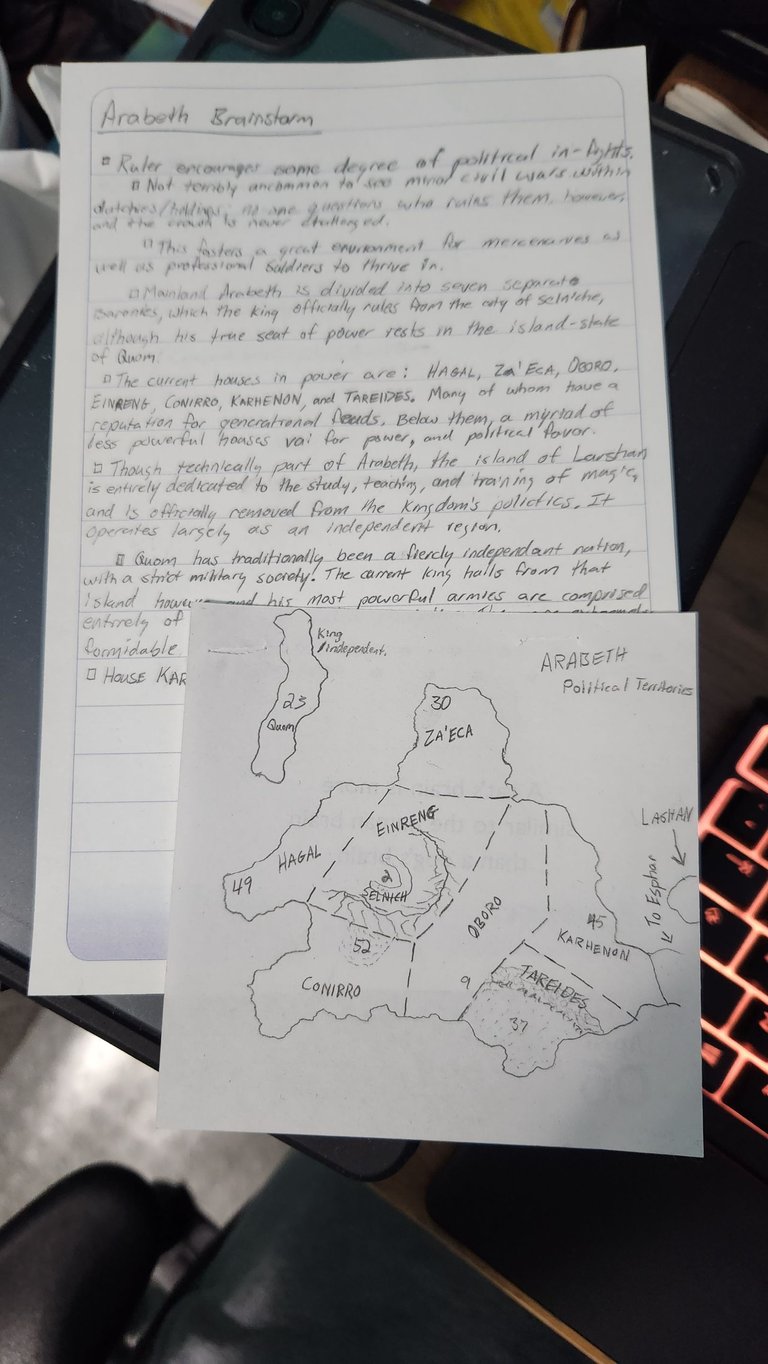 Arabeth Brainstorm
Ruler encourages some degree of political in-fights.
Not terribly uncommon to see minor civil wars within
dutchies/holdings; no one questions who rules them, however,
and the crown is never challenged.
This fosters a great environment for mercenaries as
well as professional soldiers to thrive in.
Mainland Arabeth is divided into seven separate
Baronies, which the King officially rules from the city of Selniche,
although his true seat of power rests in the island-state
of Quom.
The current houses in power are: HAGAL, ZA'ECA, OBORO,
EINRENG, CONIRRO, KARHENON, and TAREIDES. Many of whom have a
reputation for generational feuds. Below them, a myriad of
less powerful houses vai for power, and political favor.
Though technically part of Arabeth, the island of Larshan
is entirely dedicated to the study, teaching, and training of magic,
and is officially removed from the Kingdom's polictics. It
operates largely as an independent region.
Quom has traditionally been a fiercly independant nation,
with a strict military society. The current King hails from that
island and his most powerful armies are comprised
entirely of
formidable.
HOUSE KAR
King
independent.
ARABETH
Political Territories
23
Quom
30
ZA'ECA
EINRENG
HAGAL
49
SELNICH
52
CONIRRO
OBORO
9
45
KARHENON
TAREIDES
37
LASHAN
To Esphar